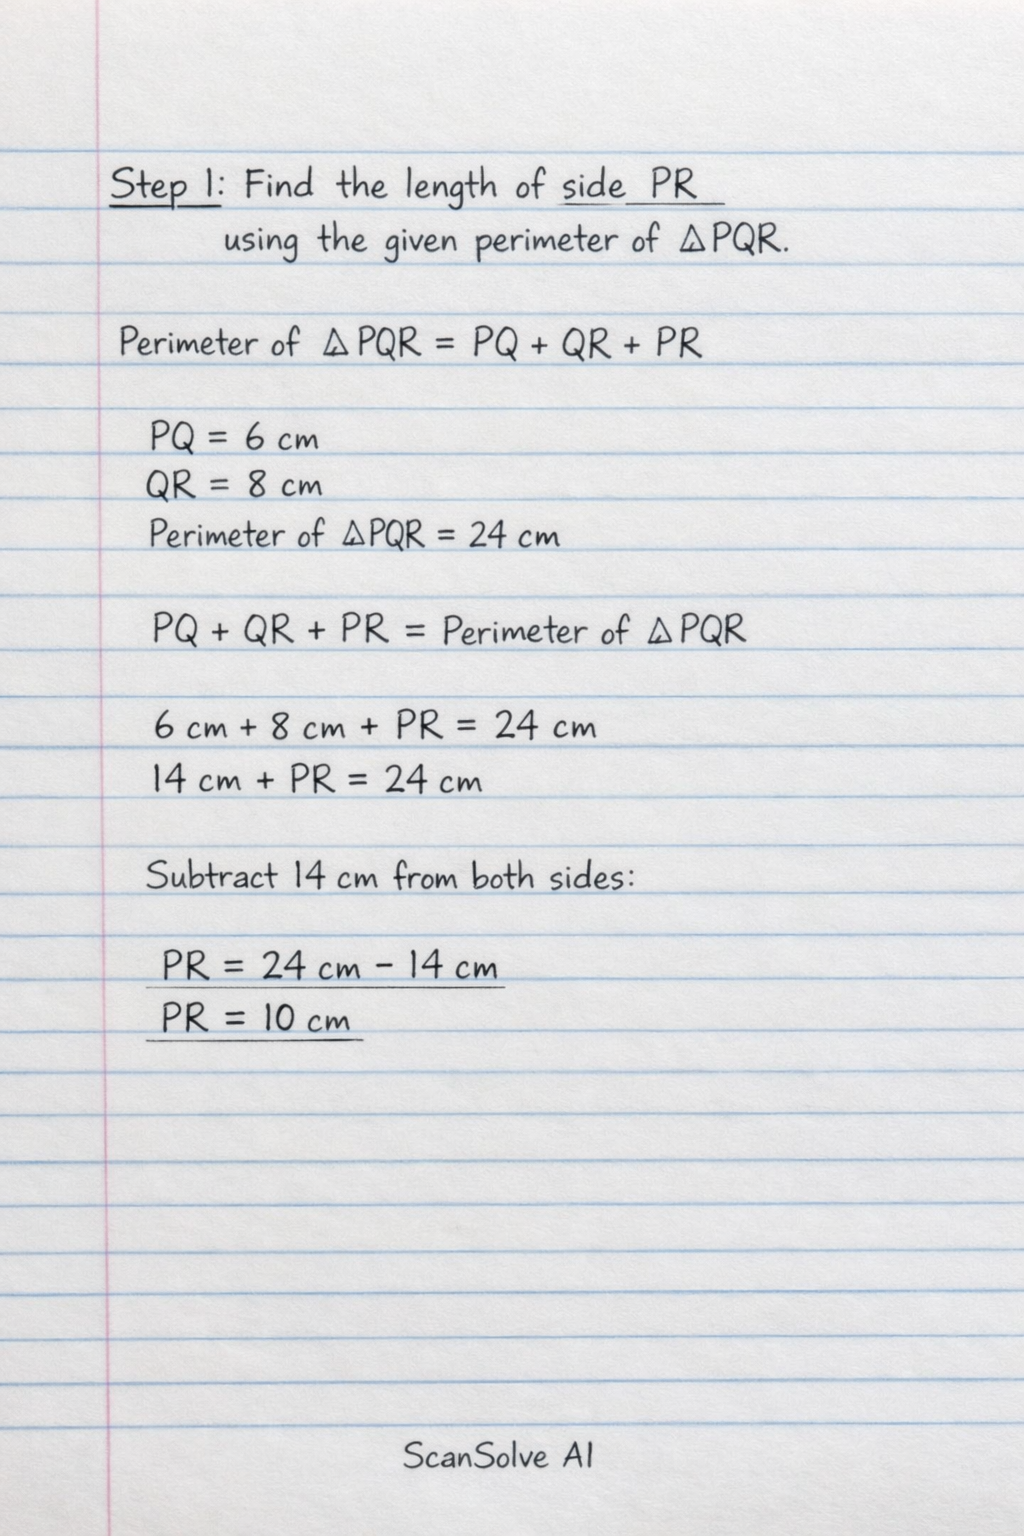 Step 1: Find the length of side PR
using the given perimeter of △PQR.
Perimeter of △PQR = PQ + QR + PR
PQ = 6 cm
QR = 8 cm
Perimeter of △PQR = 24 cm
PQ + QR + PR = Perimeter of △PQR
6 cm + 8 cm + PR = 24 cm
14 cm + PR = 24 cm
Subtract 14 cm from both sides:
PR = 24 cm - 14 cm
PR = 10 cm
ScanSolve AI